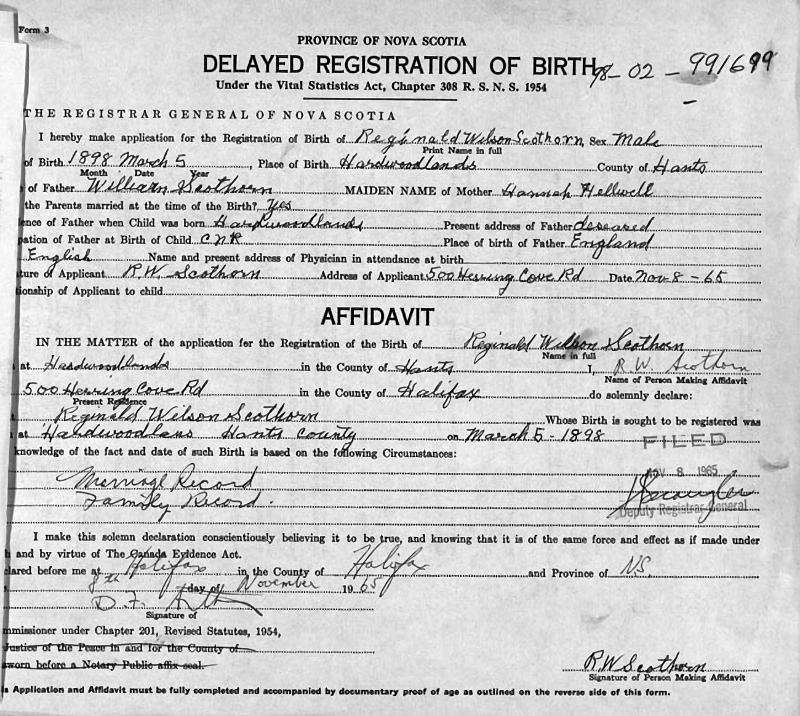 Form 3
PROVINCE OF NOVA SCOTIA
DELAYED REGISTRATION OF BIRTH 98-02-991699
Under the Vital Statistics Act, Chapter 308 R. S. N. S. 1954
THE REGISTRAR GENERAL OF NOVA SCOTIA
I hereby make application for the Registration of Birth of Reginald Wilson Scothorn, Sex Male
Print Name in full
of Birth 1898 March 5, Place of Birth Hardwoodlands County of Hants
Month Date Year
of Father William Scothorn MAIDEN NAME of Mother Hannah Hellwell
the Parents married at the time of the Birth? Yes
ence of Father when Child was born Hardwoodlands Present address of Father deseased
ation of Father at Birth of Child CNR Place of birth of Father England
English Name and present address of Physician in attendance at birth
ture of Applicant R.W. Scothorn Address of Applicant 500 Herring Cove Rd Date Nov 8 - 65
ionship of Applicant to child
AFFIDAVIT
IN THE MATTER of the application for the Registration of the Birth of Reginald Wilson Scothorn
Name in full
at Hardwoodlands in the County of Hants I, R W. Scothorn
Name of Person Making Affidavit
500 Herring Cove Rd in the County of Halifax do solemnly declare:
Present Residence
Reginald Wilson Scothorn Whose Birth is sought to be registered was
at Hardwoodlans Hants County on March 5 - 1898
FILED
knowledge of the fact and date of such Birth is based on the following Circumstances:
NOV 8 1965
Marriage Record
Family Record.
Deputy Registrar General
I make this solemn declaration conscientiously believing it to be true, and knowing that it is of the same force and effect as if made under
and by virtue of The Canada Evidence Act.
lared before me at Halifax in the County of Halifax and Province of NS.
8th day of November 1965
D. F.
Signature of
mmissioner under Chapter 201, Revised Statutes, 1954,
Justice of the Peace in and for the County of
sworn before a Notary Public affix seal.
R.W Scothorn
Signature of Person Making Affidavit
s Application and Affidavit must be fully completed and accompanied by documentary proof of age as outlined on the reverse side of this form.